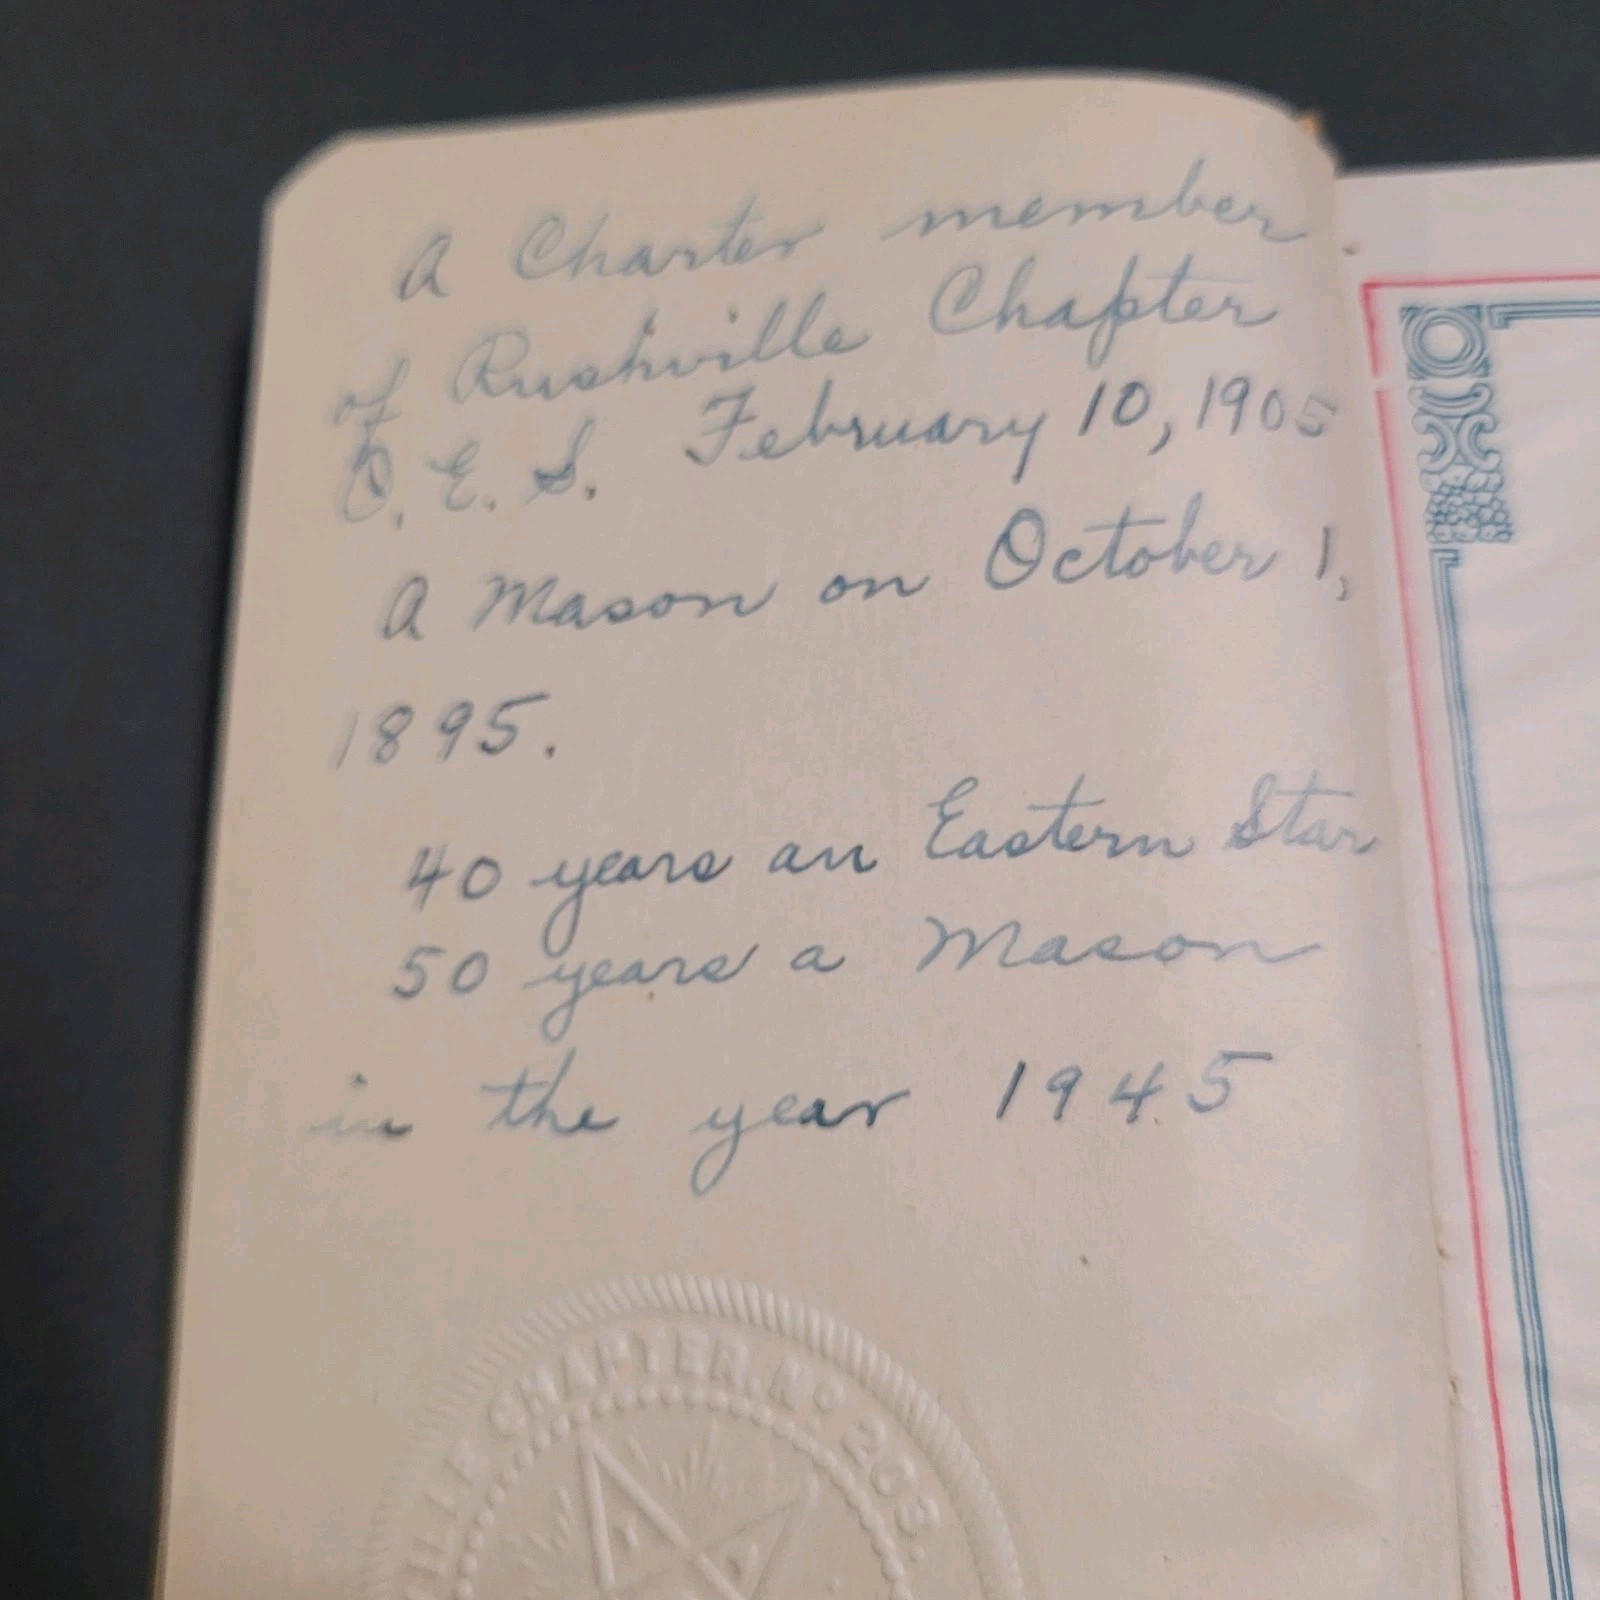 A Charter member
of Rushville Chapter
O. E. S. February 10, 1905
A Mason on October 1,
1895.
40 years an Eastern Star
50 years a Mason
in the year 1945
VILLE CHAPTER, No 263.